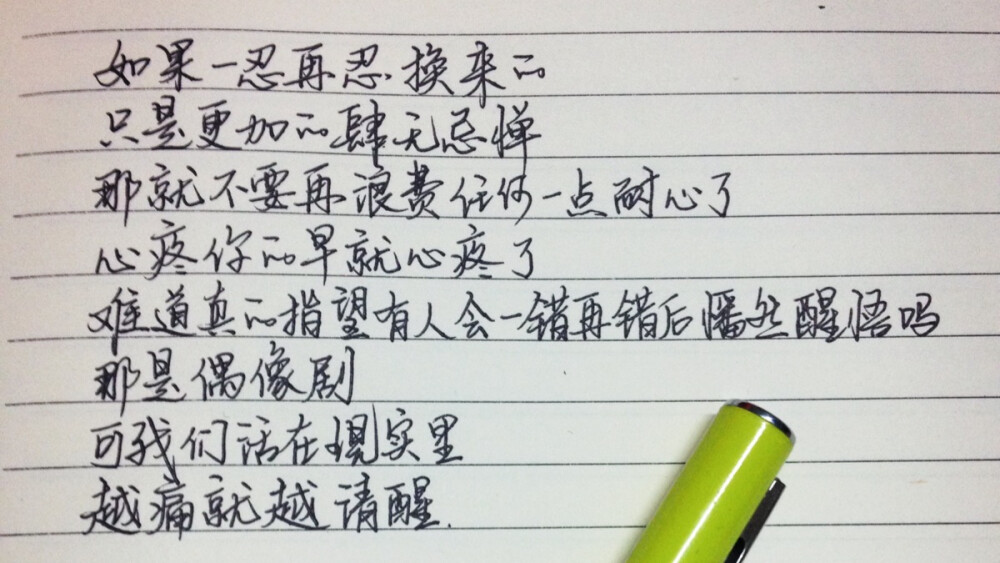 如果一忍再忍换来的
只是更加的肆无忌惮
那就不要再浪费任何一点耐心了
心疼你的早就心疼了
难道真的指望有人会一错再错后幡然醒悟吗
那是偶像剧
可我们活在现实里
越痛就越请醒.